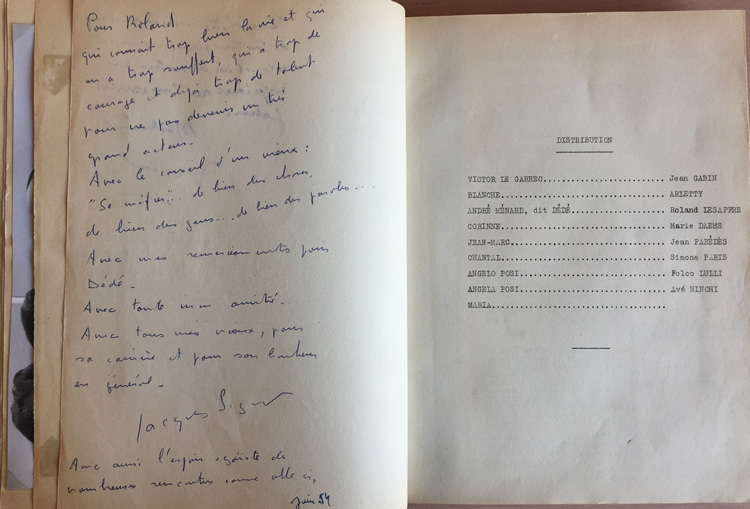 Pour Roland
qui connait trop bien la vie et qui
en a trop souffert, qui a trop de
courage et déjà trop de talent
pour ne pas devenir un très
grand acteur.
Avec le conseil d'un vieux :
"Se méfier"... de bien des choses,
de bien des gens... de bien des paroles...
Avec mes remerciements pour
Dédé.
Avec toute mon amitié.
Avec tous mes vœux, pour
sa carrière et pour son bonheur
en général.
Jacques Sigurd
Avec aussi l'espoir égoïste de
nombreuses rencontres comme celle ci,
Juin 54
DISTRIBUTION
VICTOR LE GARREC........................ Jean GABIN
BLANCHE................................. ARLETTY
ANDRÉ MÉNARD, dit DÉDÉ.................. Roland LESAFFRE
CORINNE................................. Marie DAEMS
JEAN-MARC............................... Jean PARÉDÈS
CHANTAL................................. Simone PARIS
ANGELO POSI............................. Folco LULLI
ANGELA POSI............................. Avé NINCHI
MARIA...................................